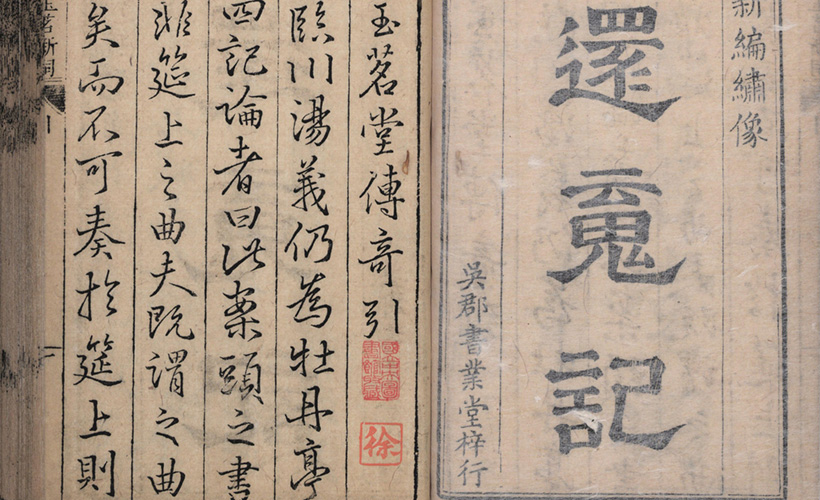 新編繡像
還䰟記
吳郡書業堂梓行
玉茗堂傳奇引
臨川湯義仍為牡丹亭
四記論者曰此案頭之書
非筵上之曲夫既謂之曲
矣而不可奏於筵上則
徐